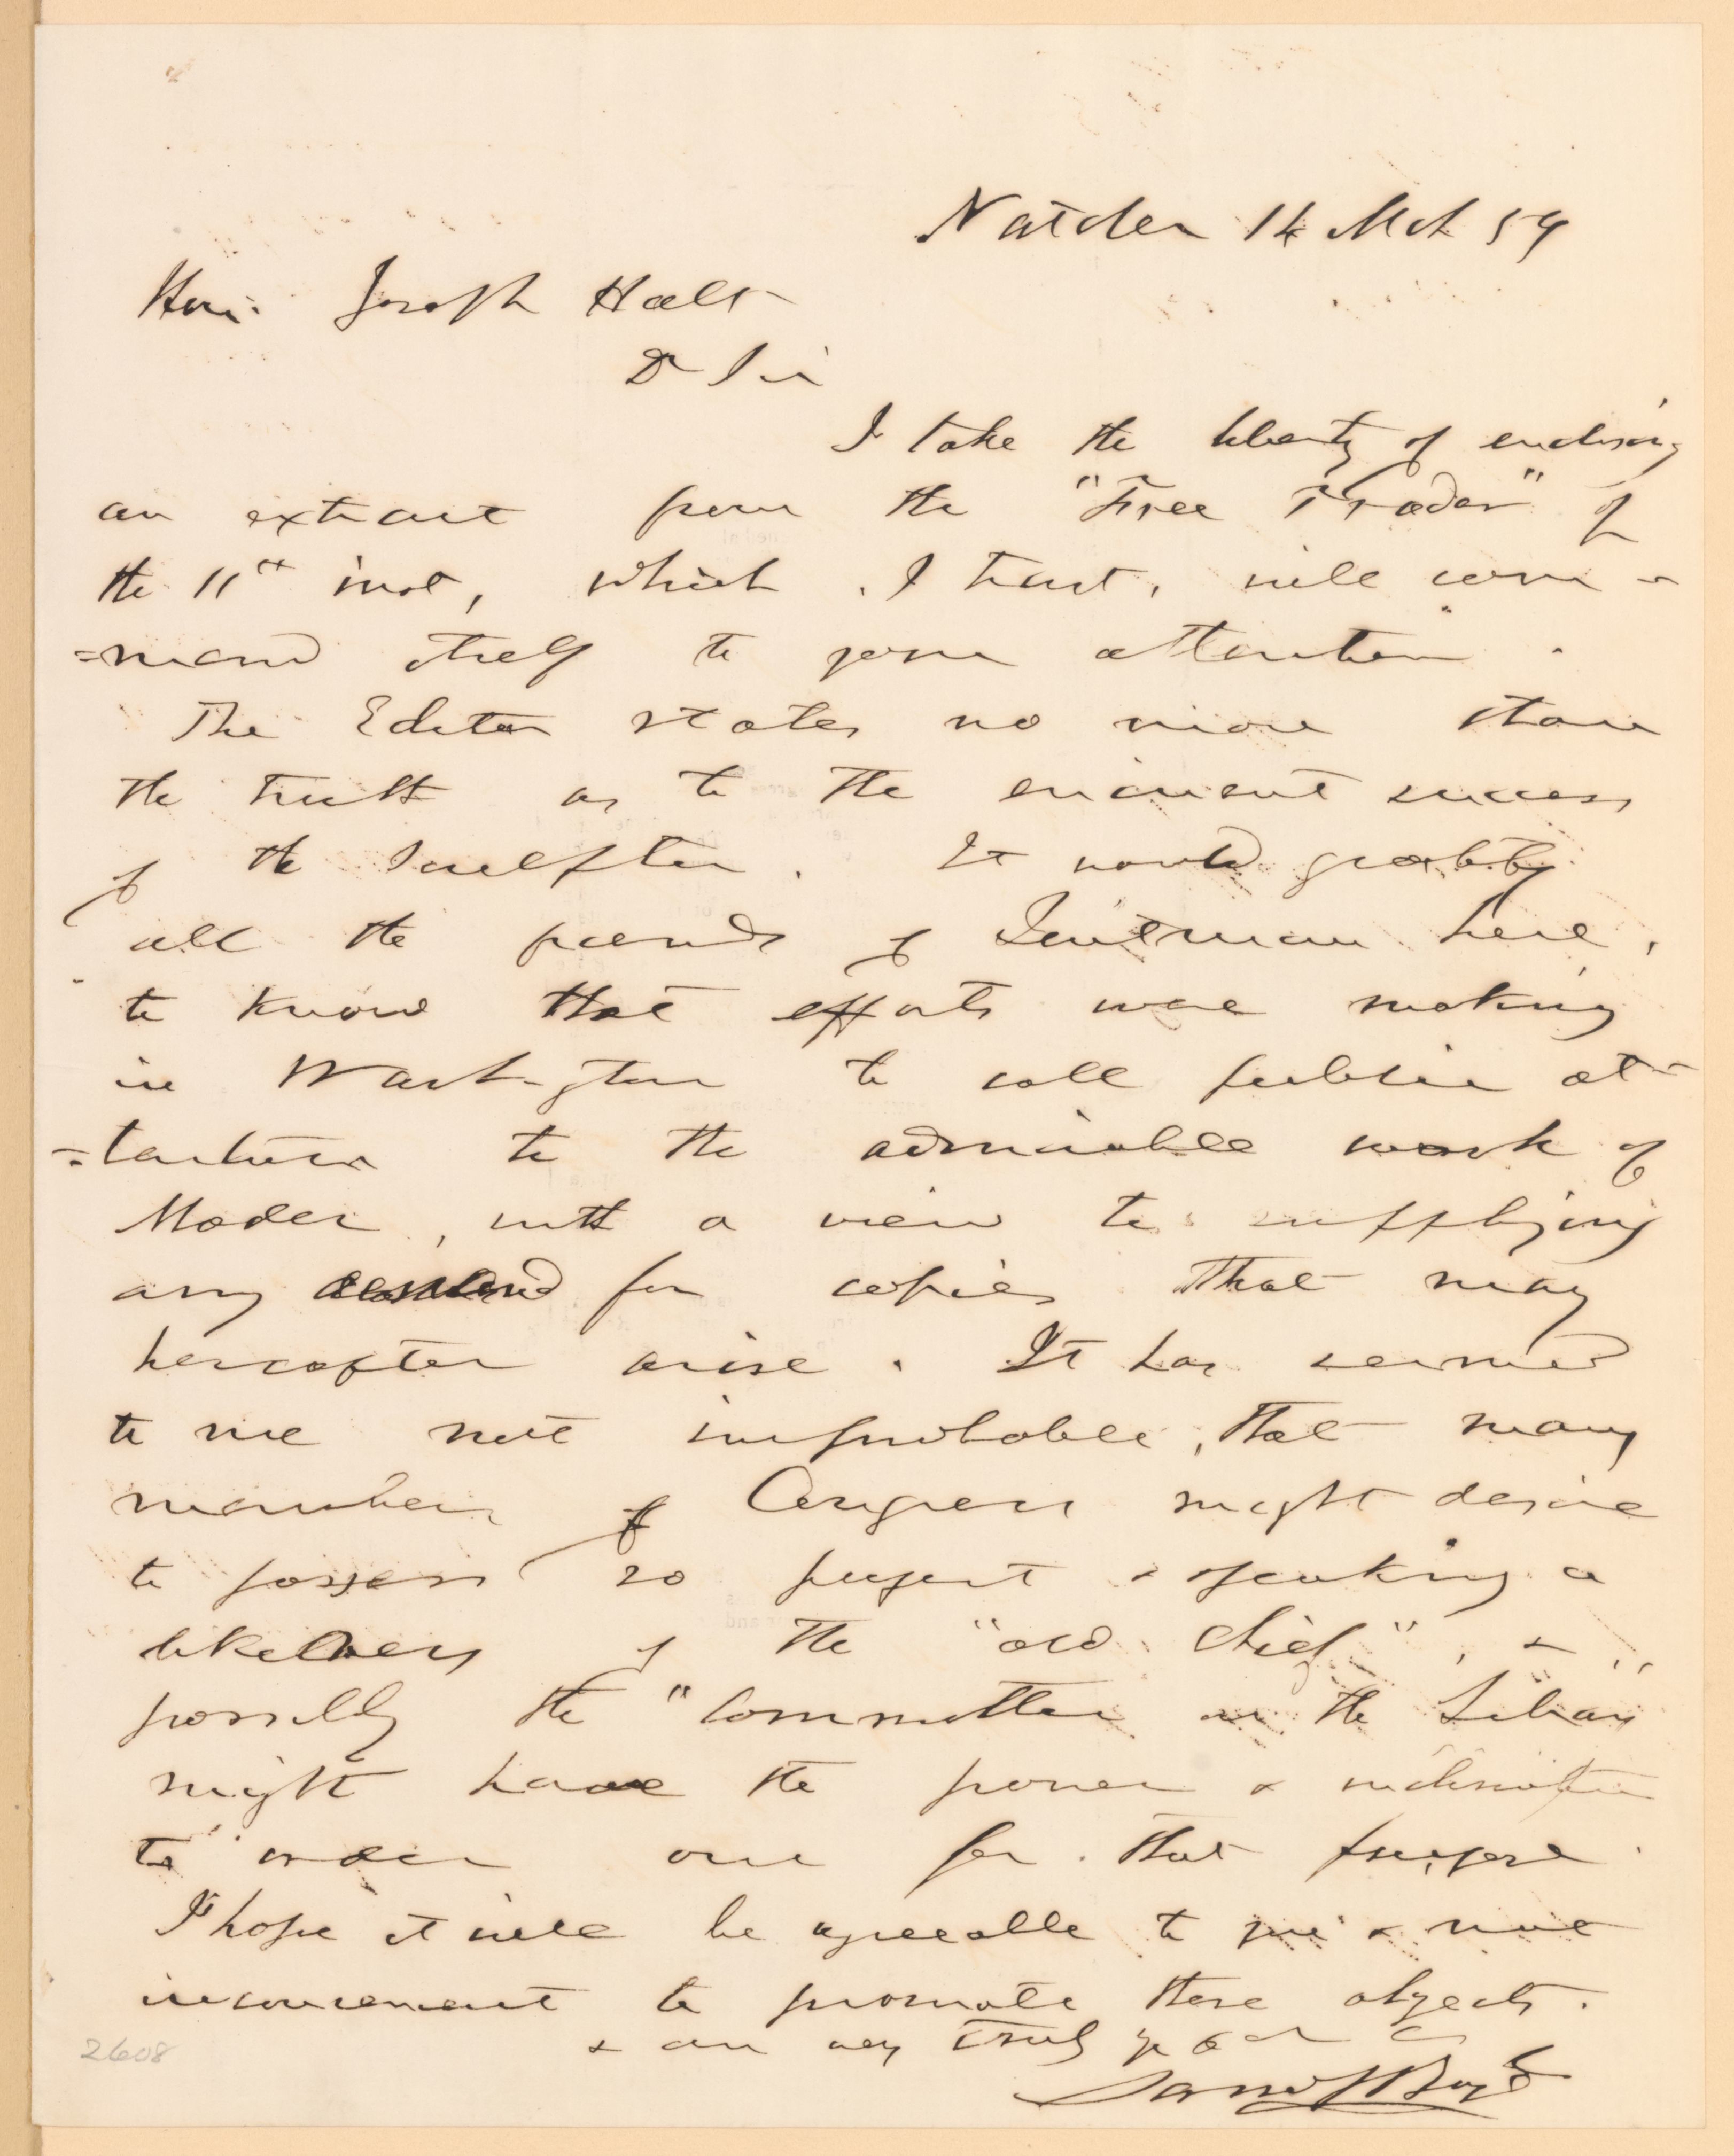 Natchez 14 Mch 59
Hon. Joseph Holt
Dr Sir
I take the liberty of enclosing
an extract from the "Free Trader" of
the 11th inst, which, I trust, will com-
=mend itself to your attention.
The Editor states no more than
the truth as to the eminent success
of the Sculptor. It would gratify
all the friends of Quitman here,
to know that efforts were making
in Washington to call public at-
=tention to the admirable work of
Moder, with a view to supplying
any demand for copies that may
hereafter arise. It has seemed
to me not improbable, that many
members of Congress might desire
to possess so perfect & speaking a
likeness of the "old Chief", &
possibly the "Committee on the Library"
might have the power & inclination
to order one for that purpose.
I hope it will be agreeable to you & not
inconvenient to promote these objects.
& am very truly yr
2608